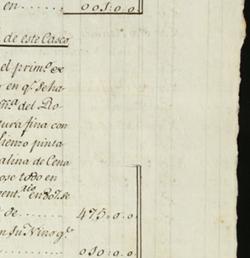 en ...... 001.0.0
de este Casco
el primº. ex
en qe. se ha
del Do
tura fina con
lienzo pinta
alina de Cena
ose todo en
de ...... 475.0.0
n su Vino qe
...... 010.0.0